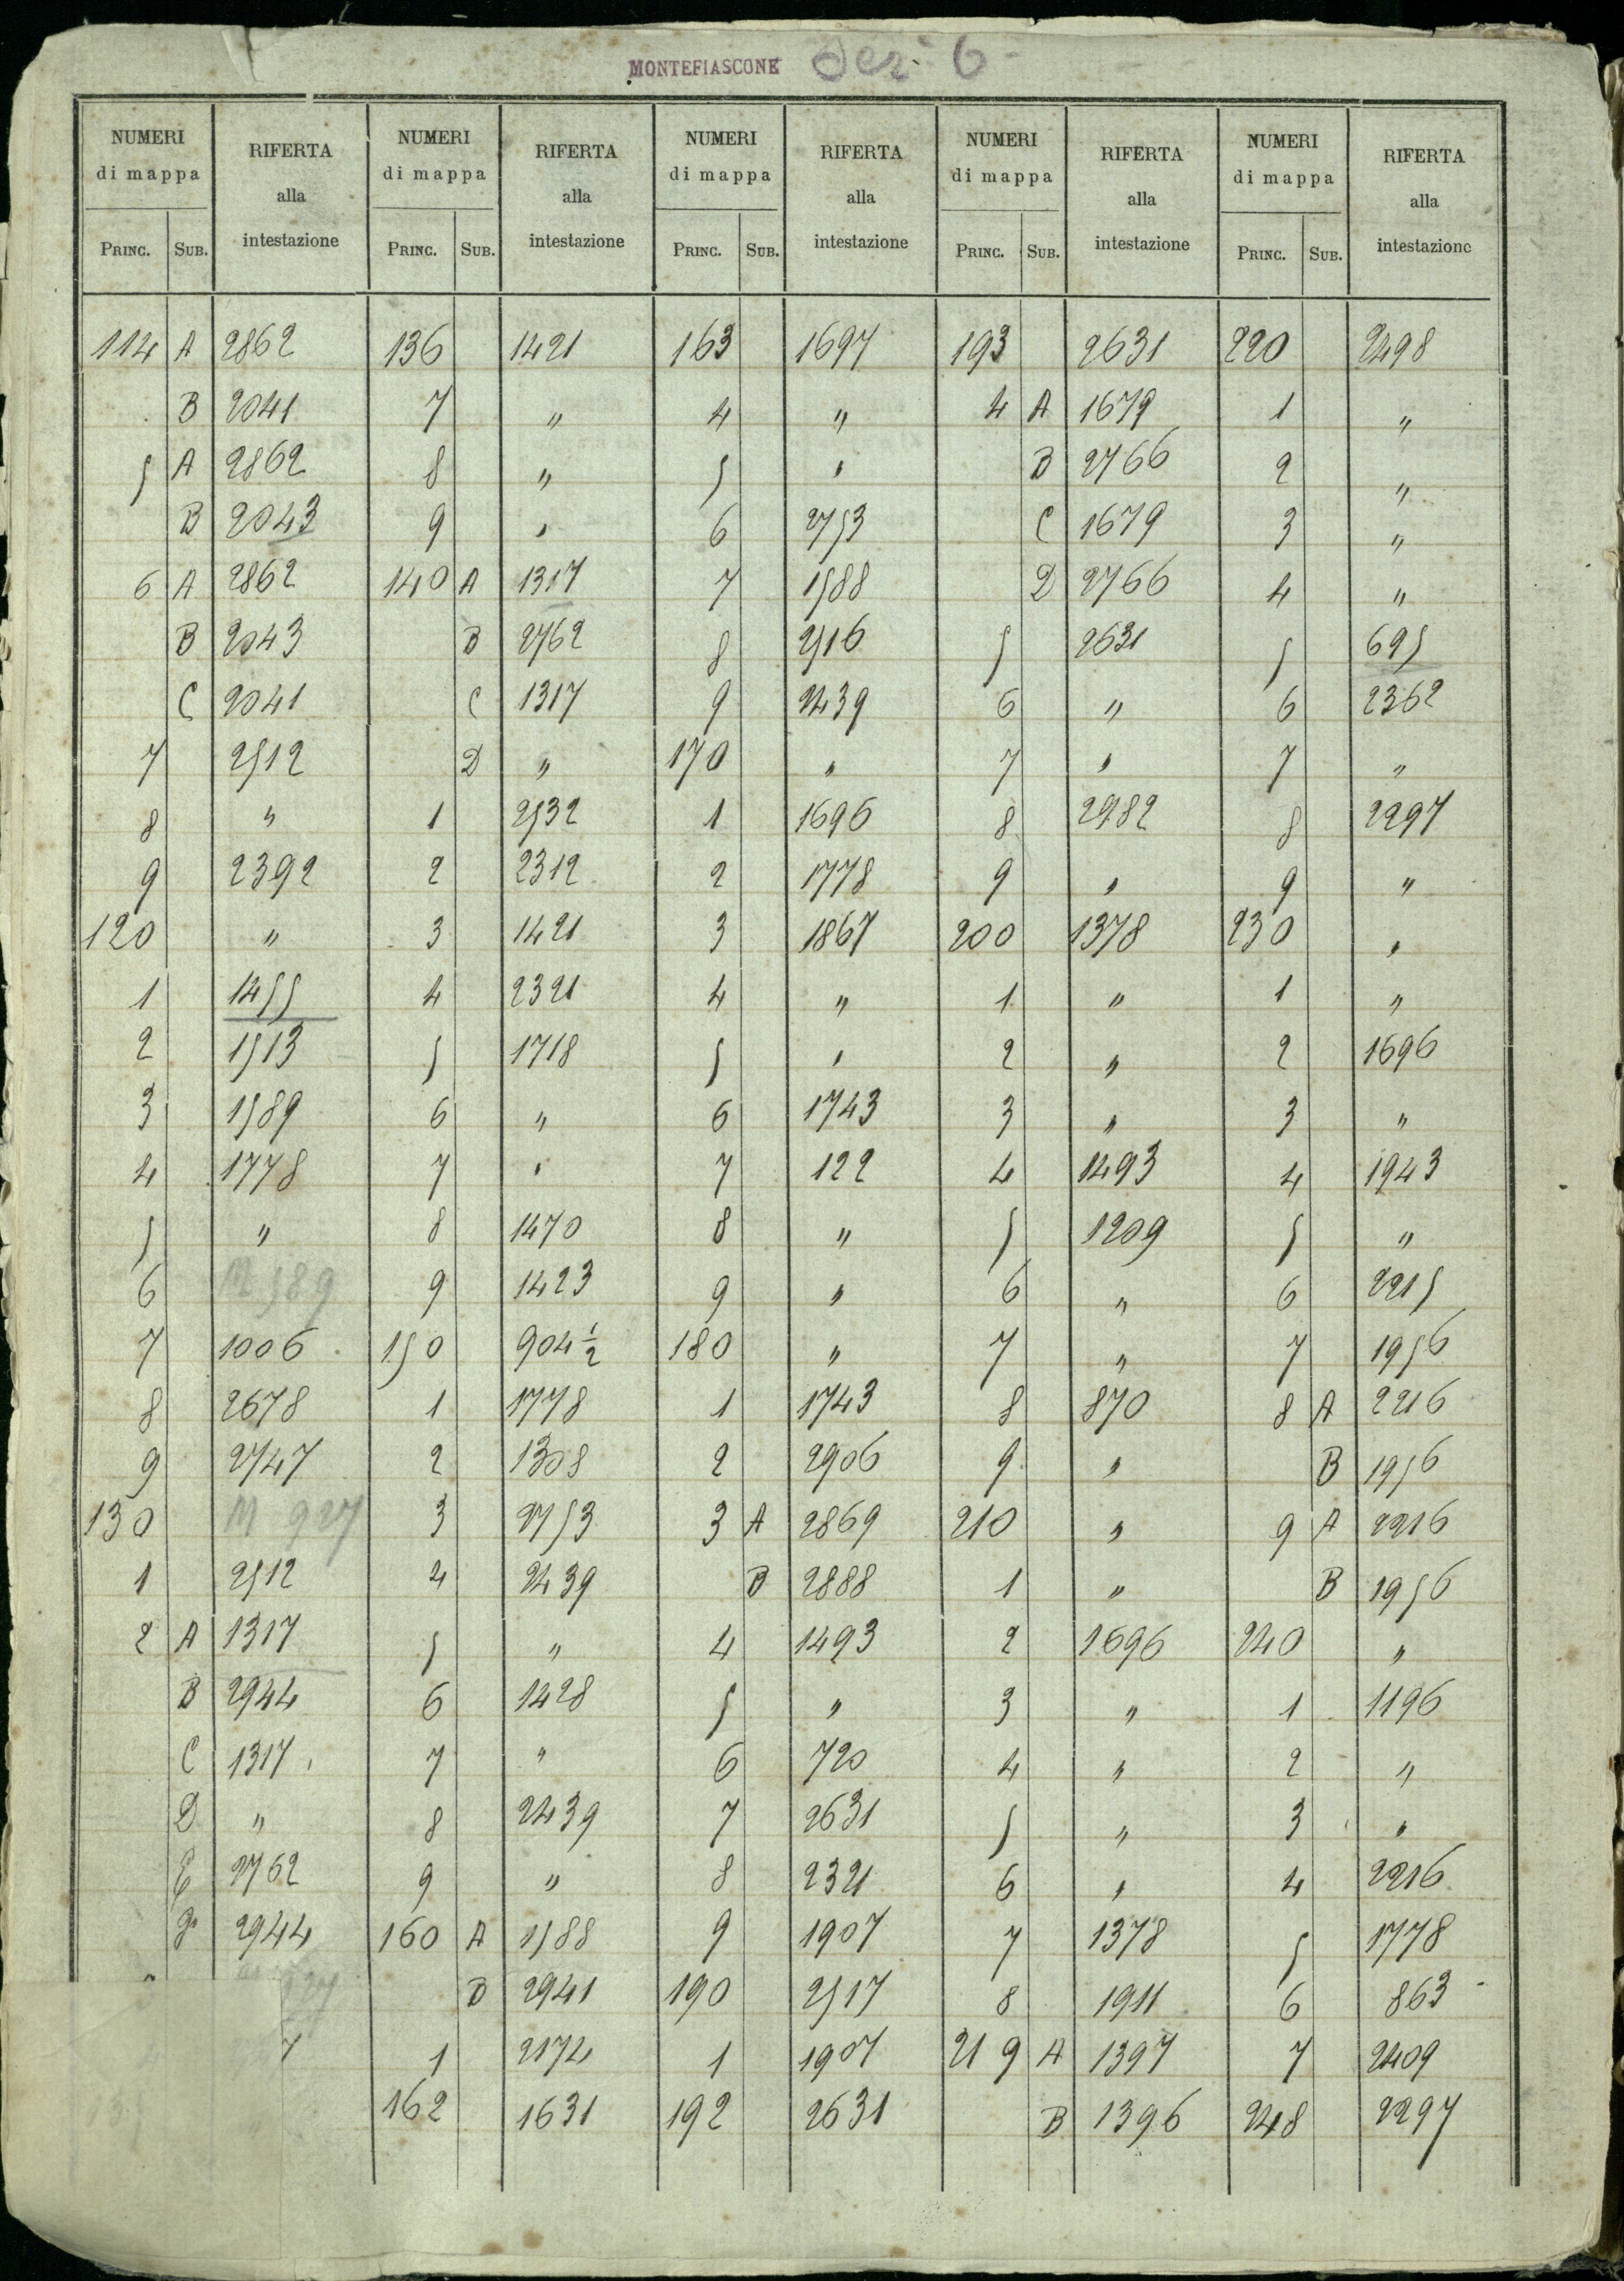 MONTEFIASCONE Sez. 6
NUMERI di mappa | RIFERTA alla intestazione | NUMERI di mappa | RIFERTA alla intestazione | NUMERI di mappa | RIFERTA alla intestazione | NUMERI di mappa | RIFERTA alla intestazione | NUMERI di mappa | RIFERTA alla intestazione
PRINC. | SUB. | PRINC. | SUB. | PRINC. | SUB. | PRINC. | SUB. | PRINC. | SUB.
114 A 2862 | 136 1421 | 163 1697 | 193 2631 | 220 2498
B 2041 | 7 " | 4 " | 4 A 1679 | 1 "
5 A 2862 | 8 " | 5 " | B 2766 | 2 "
B 2043 | 9 " | 6 2753 | C 1679 | 3 "
6 A 2862 | 140 A 1317 | 7 1588 | D 2766 | 4 "
B 2043 | B 2762 | 8 2516 | 5 2631 | 5 695
C 2041 | C 1317 | 9 2439 | 6 " | 6 2362
7 2512 | D " | 170 " | 7 " | 7 "
8 " | 1 2532 | 1 1696 | 8 2982 | 8 2297
9 2392 | 2 2312 | 2 1778 | 9 " | 9 "
120 " | 3 1421 | 3 1867 | 200 1378 | 230 "
1 1455 | 4 2321 | 4 " | 1 " | 1 "
2 1513 | 5 1718 | 5 " | 2 " | 2 1696
3 1589 | 6 " | 6 1743 | 3 " | 3 "
4 1778 | 7 " | 7 122 | 4 1493 | 4 1943
5 " | 8 1470 | 8 " | 5 1209 | 5 "
6 M 589 | 9 1423 | 9 " | 6 " | 6 2215
7 1006 | 150 904 1/2 | 180 " | 7 " | 7 1956
8 2678 | 1 1778 | 1 1743 | 8 870 | 8 A 2216
9 2747 | 2 1308 | 2 2906 | 9 " | B 1956
130 M 927 | 3 2753 | 3 A 2869 | 210 " | 9 A 2216
1 2512 | 4 2439 | B 2888 | 1 " | B 1956
2 A 1317 | 5 " | 4 1493 | 2 1696 | 240 "
B 2944 | 6 1428 | 5 " | 3 " | 1 1196
C 1317 | 7 " | 6 720 | 4 " | 2 "
D " | 8 2439 | 7 2631 | 5 " | 3 "
E 2762 | 9 " | 8 2321 | 6 " | 4 2216
F 2944 | 160 A 1588 | 9 1907 | 7 1378 | 5 1778
B 2941 | 190 2517 | 8 1911 | 6 863
7 | 1 2174 | 1 1907 | 219 A 1397 | 7 2409
162 1631 | 192 2631 | B 1396 | 248 2297